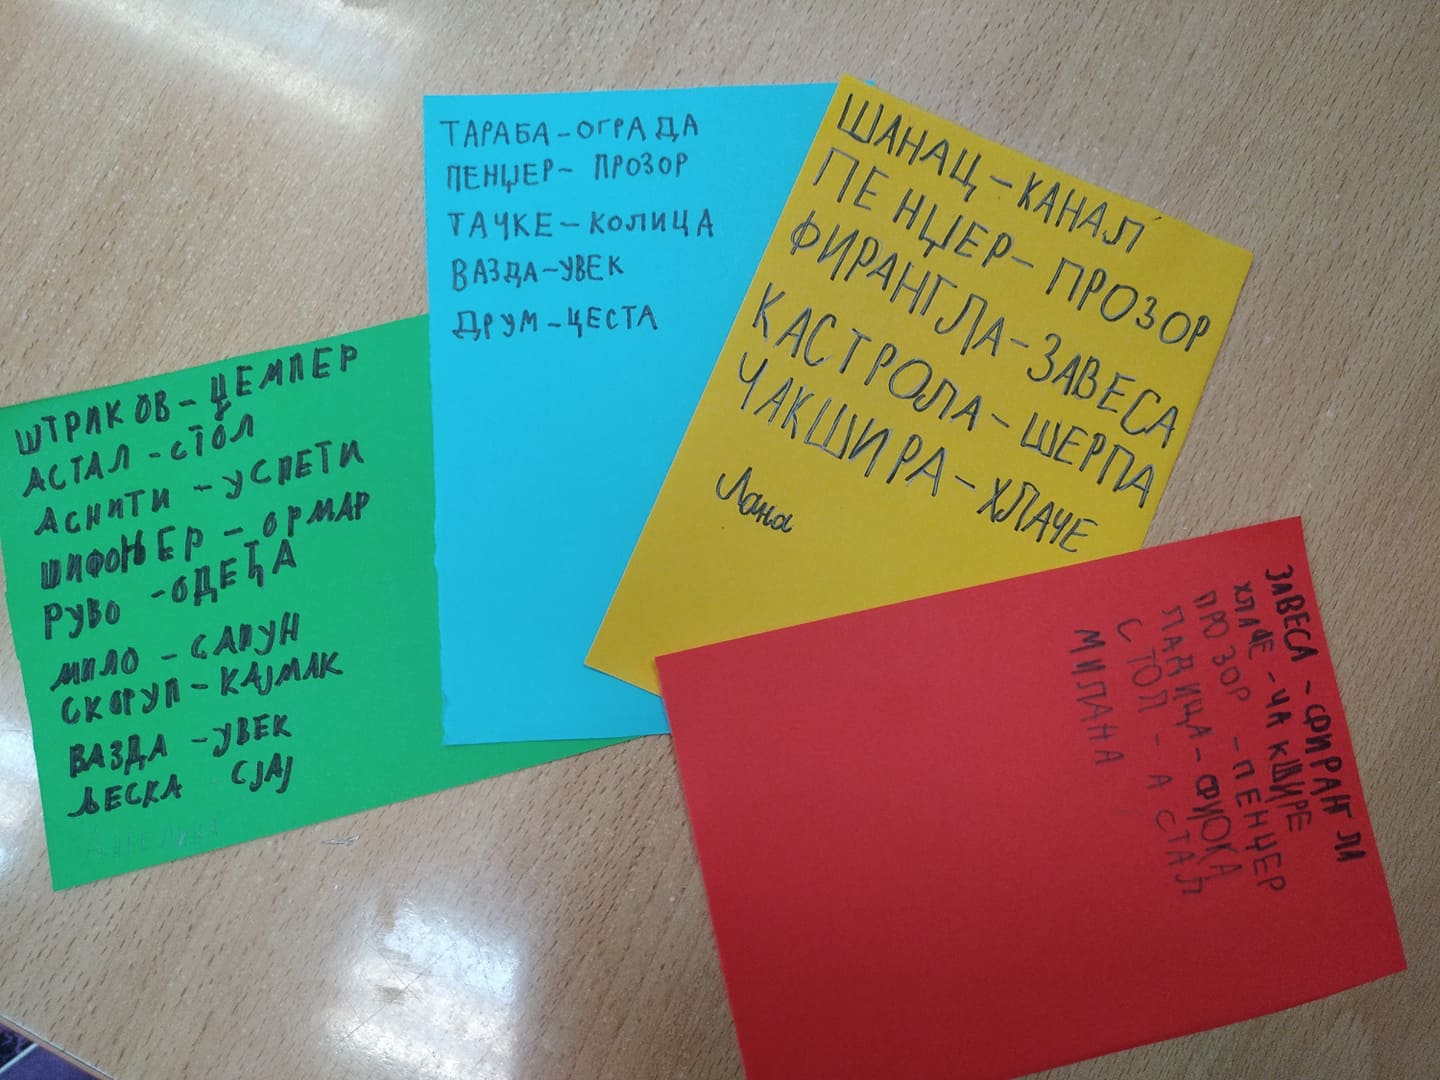 ШТРИКОВ-ЏЕМПЕР
АСТАЛ-СТОЛ
АСНИТИ-УСПЕТИ
ШИФОЊЕР-ОРМАР
РУВО-ОДЕЋА
МИЛО-САПУН
СКОРУП-КАЈМАК
ВАЗДА-УВЕК
ЉЕСКА СЈАЈ
ТАРАБА-ОГРАДА
ПЕНЏЕР-ПРОЗОР
ТАЧКЕ-КОЛИЦА
ВАЗДА-УВЕК
ДРУМ-ЦЕСТА
ШАНАЦ-КАНАЛ
ПЕНЏЕР-ПРОЗОР
ФИРАНГЛА-ЗАВЕСА
КАСТРОЛА-ШЕРПА
ЧАКШИРА-ХЛАЧЕ
Лана
ЗАВЕСА-ФИРАНГЛИ
ХЛАЧЕ-ЧАКШИРЕ
ПРОЗОР-ПЕНЏЕР
ЛАДИЦА-ФИОКА
СТОЛ-АСТАЛ
МИЛАНА